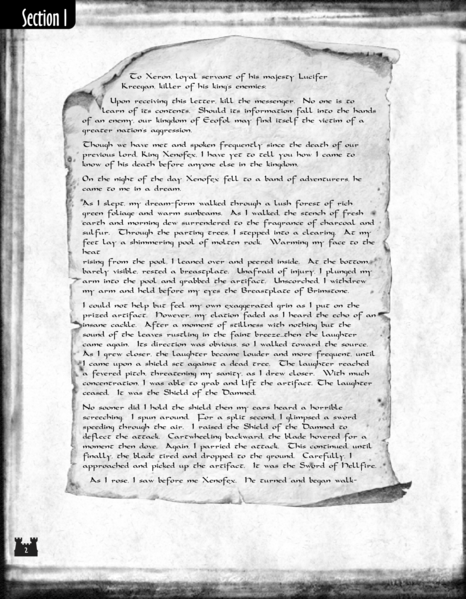 Section I
To Xeron, loyal servant of his majesty Lucifer
Kreegan, killer of his king's enemies:
Upon receiving this letter, kill the messenger. No one is to
learn of its contents. Should its information fall into the hands
of an enemy, our kingdom of Eeofol may find itself the victim of a
greater nation's aggression.
Though we have met and spoken frequently since the death of our
previous Lord, King Xenofex, I have yet to tell you how I came to
know of his death before anyone else in the kingdom.
On the night of the day Xenofex fell to a band of adventurers, he
came to me in a dream.
As I slept, my dream-form walked through a lush forest of rich
green foliage and warm sunbeams. As I walked, the stench of fresh
earth and morning dew surrendered to the fragrance of charcoal and
sulfur. Through the parting trees, I stepped into a clearing. At my
feet lay a shimmering pool of molten rock. Warming my face to the
heat
rising from the pool, I leaned over and peered inside. At the bottom,
barely visible, rested a breastplate. Unafraid of injury, I plunged my
arm into the pool and grabbed the artifact. Unscorched, I withdrew
my arm and held before my eyes the Breastplate of Brimstone.
I could not help but feel my own exaggerated grin as I put on the
prized artifact. However, my elation faded as I heard the echo of an
insane cackle. After a moment of stillness with nothing but the
sound of the leaves rustling in the faint breeze...then the laughter
came again. Its direction was obvious, so I walked toward the source.
As I grew closer, the laughter became louder and more frequent, until
I came upon a shield set against a dead tree. The laughter reached
a fevered pitch, threatening my sanity, as I drew closer. With much
concentration, I was able to grab and lift the artifact. The laughter
ceased. It was the Shield of the Damned.
No sooner did I hold the shield then my ears heard a horrible
screeching. I spun around. For a split second, I glimpsed a sword
speeding through the air. I raised the Shield of the Damned to
deflect the attack. Cartwheeling backward, the blade hovered for a
moment then dove. Again, I parried the attack. This continued until
finally, the blade tired and dropped to the ground. Carefully, I
approached and picked up the artifact. It was the Sword of Hellfire.
As I rose, I saw before me Xenofex. He turned and began walk-
2